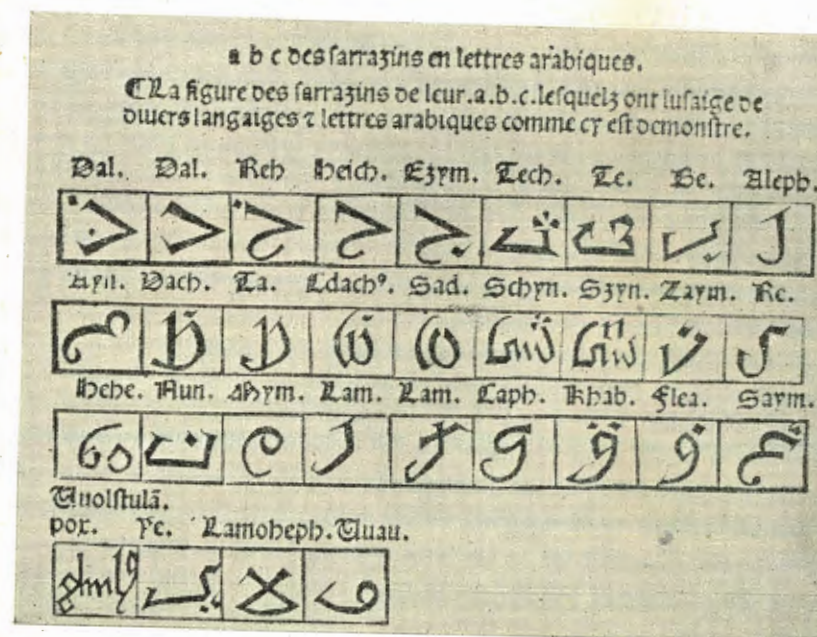 a b c des sarrazins en lettres arabiques.
¶ La figure des sarrazins de leur.a.b.c.lesquelz ont lusaige de
divers langaiges ⁊ lettres arabiques comme cy est demonstre.
Dal. Dal. Reh Heich. Ezym. Tech. Te. Be. Aleph.
Ayn. Dach. Ta. Ldachꝰ. Sad. Schyn. Szyn. Zaym. Re.
Hehe. Nun. Mym. Lam. Lam. Caph. Khab. Flea. Saym.
Vuolstulā.
pox. Ye. Lamoheph. Vuau.